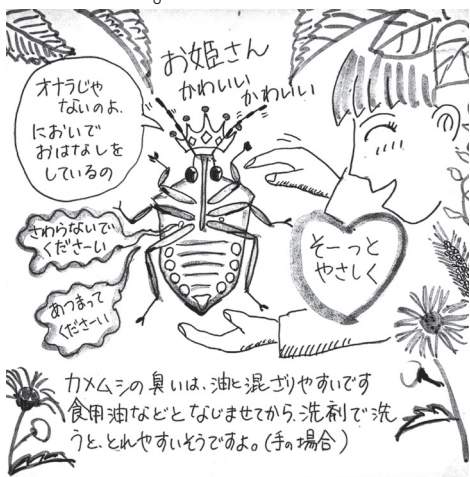 お姫さん
かわいい
かわいい
オナラじゃ
ないのよ、
においで
おはなしを
しているの
さわらないで
くださーい
あつまって
くださーい
そーっと
やさしく
カメムシの臭いは、油と混ざりやすいです
食用油などとなじませてから、洗剤で洗
うと、とれやすいそうですよ。(手の場合)